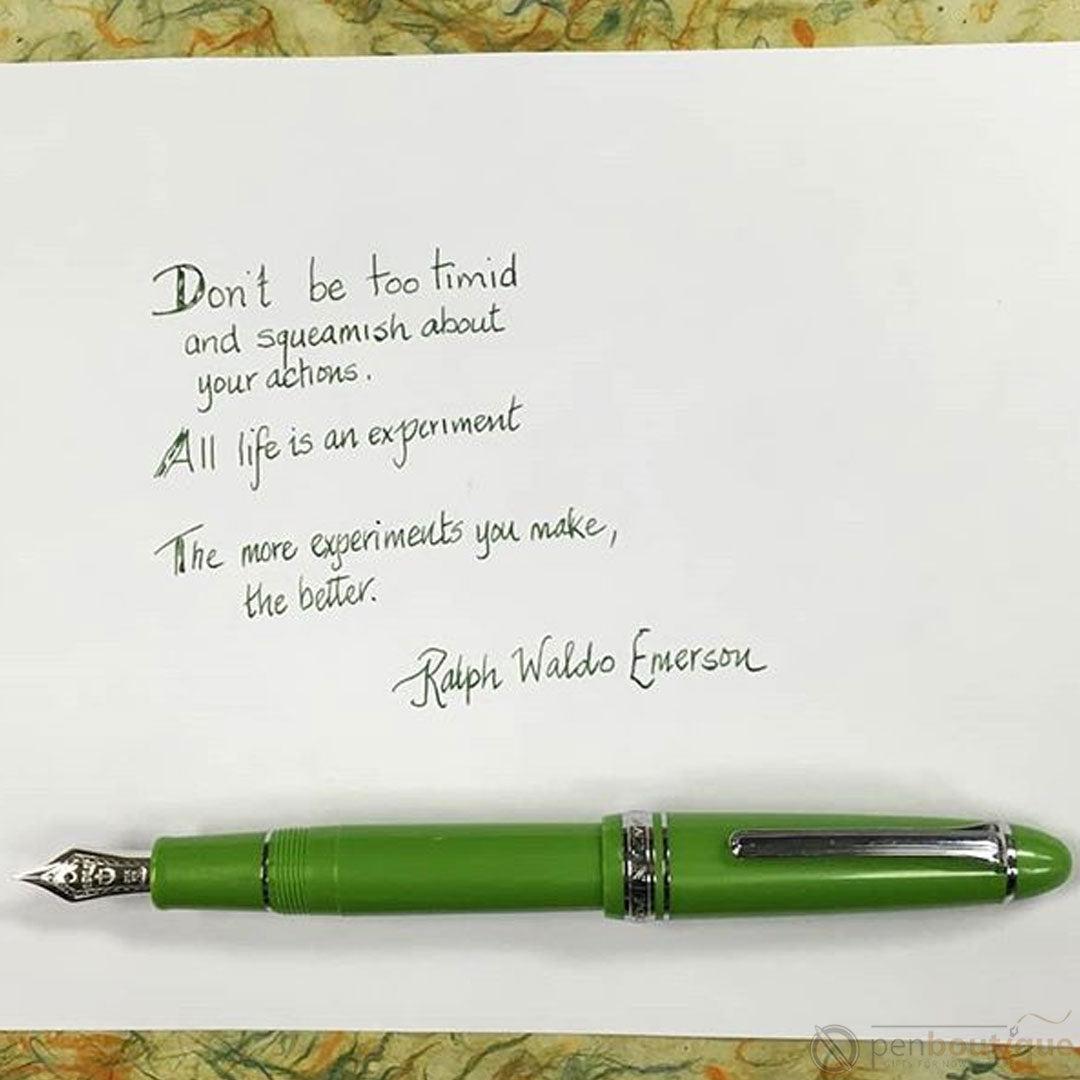 Don't be too timid
and squeamish about
your actions.
All life is an experiment
The more experiments you make,
the better.
Ralph Waldo Emerson
penboutique
GIFTS FOR NOW